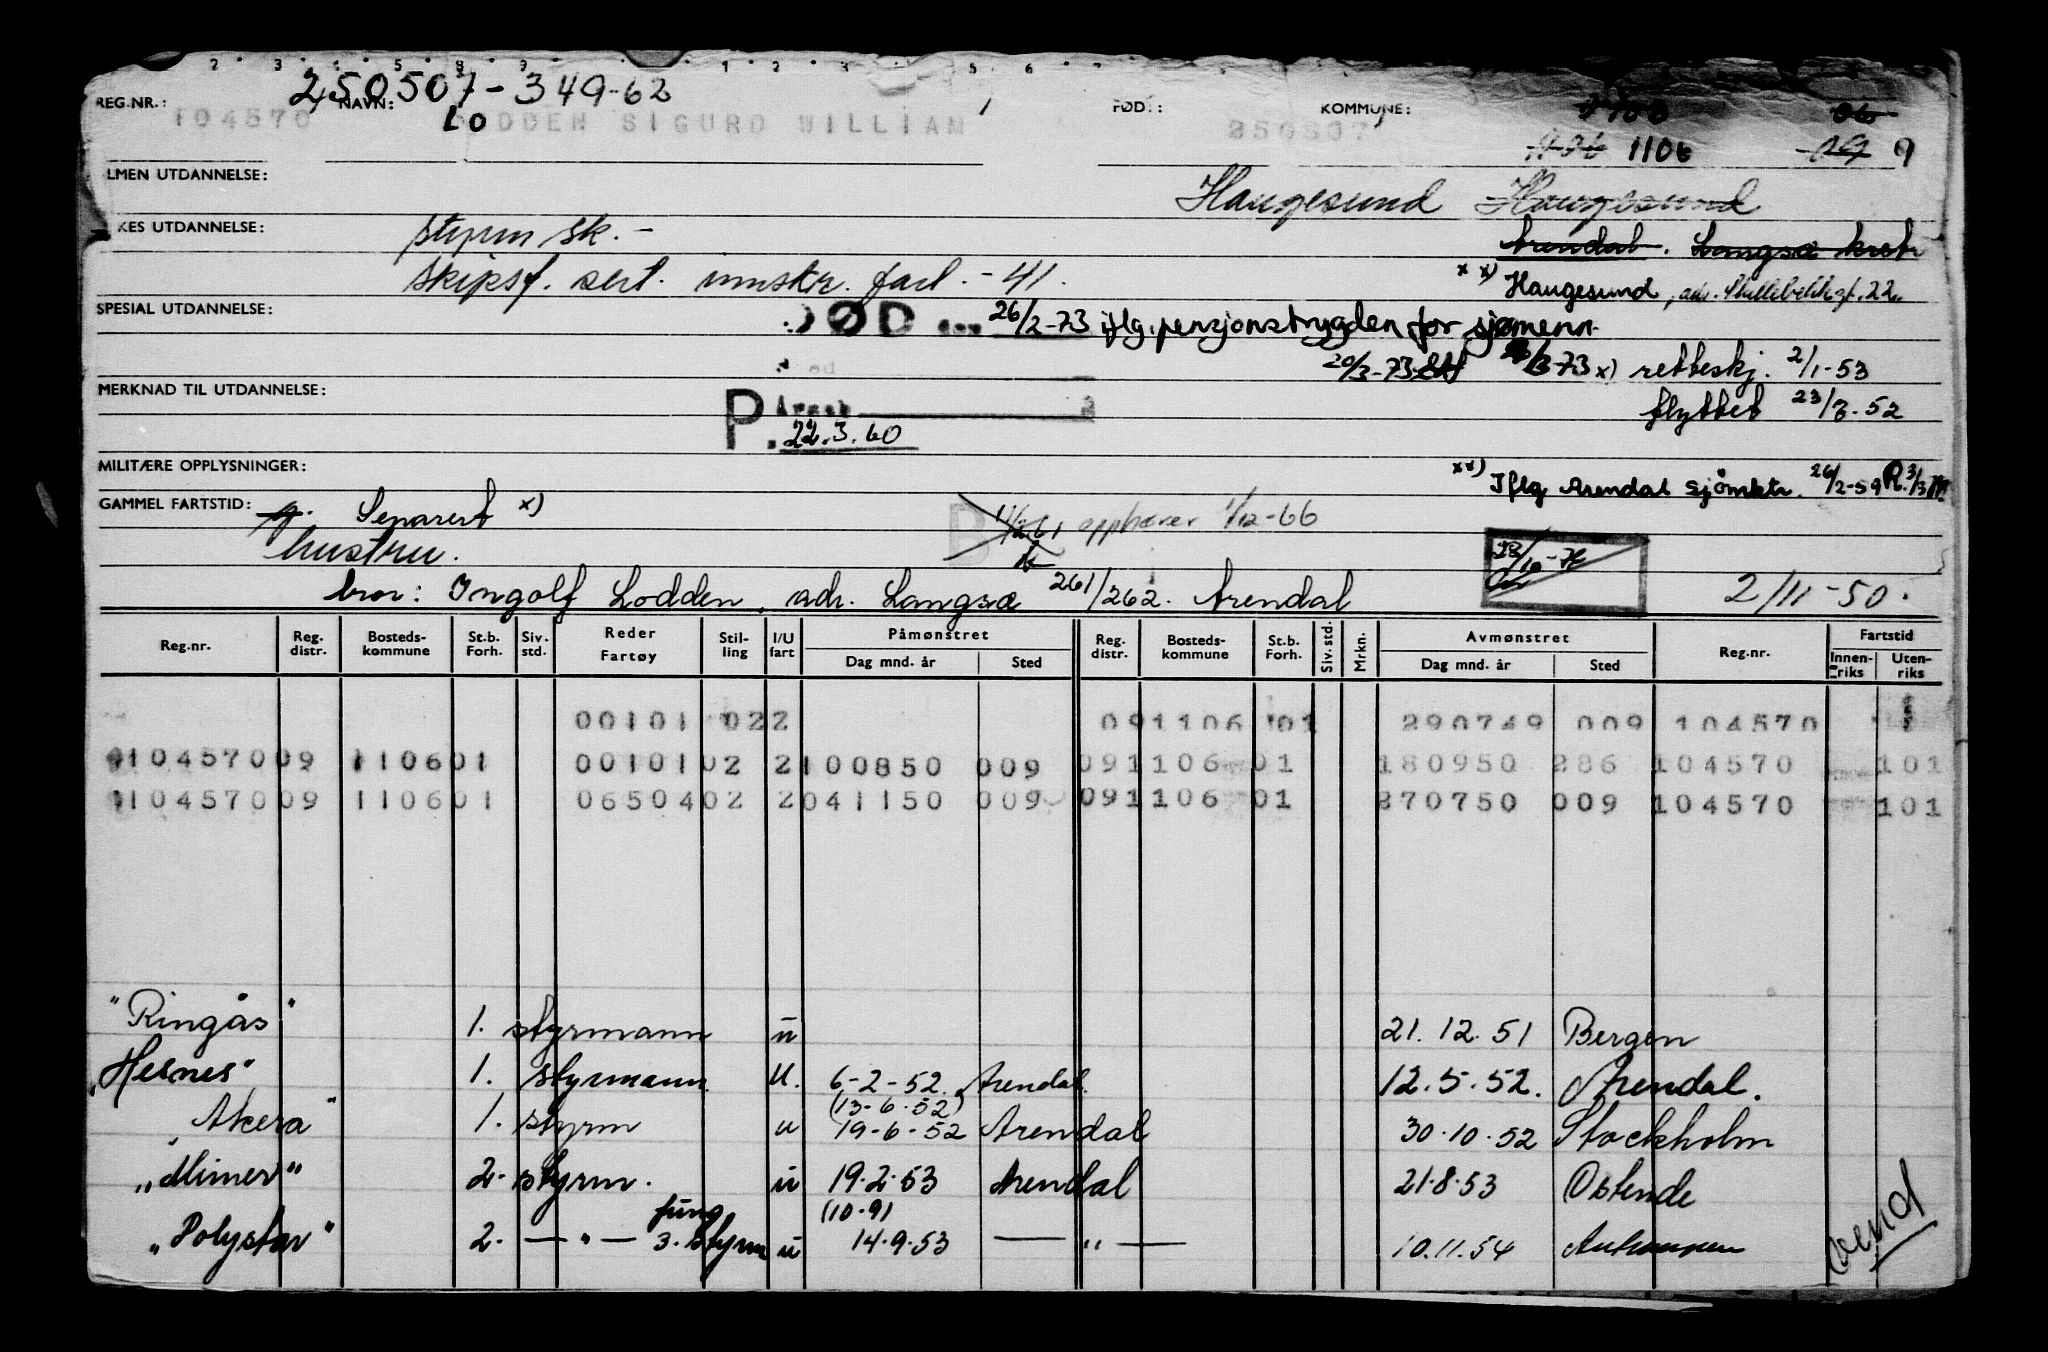 2 · 3 · 4 · 5 · 8 · 9 · 1 · 2 · 3 · 5 6 · 7
250507-349-62
REG.NR.: NAVN: FØD.: KOMMUNE:
104570 LODDEN SIGURD WILLIAM 250507 1106 9
LMEN UTDANNELSE: Haugesund Haugesund
KES UTDANNELSE: styrm sk. - Arendal. Langsæ
skipsf. sert. innskr. fart. - 41. x x) Haugesund, adr. 22.
SPESIAL UTDANNELSE: ØD den 26/2-73 iflg. pensjonstrygden for sjømenn.
20/3-73 x) retteskj. 2/1-53
MERKNAD TIL UTDANNELSE: flyttet 23/7-52
P. 22.3.60
MILITÆRE OPPLYSNINGER: xx) Iflg Arendal sjømktr. 26/2-59
GAMMEL FARTSTID: g. Separert x) B opphører 1/12-66
hustru.
bror: Ingolf Lodden, adr. Langsæ 261/262. Arendal 2/11-50.
Reg.nr. Reg. distr. Bosteds-kommune St.b. Forh. Siv. std. Reder Fartøy Stil-ling I/U fart Påmønstret Dag mnd. år Sted Reg. distr. Bosteds-kommune St.b. Forh. Siv. std. Mrkn. Avmønstret Dag mnd. år Sted Reg.nr. Fartstid Innen-riks Uten-riks
00101 022 091106 01 290749 009 104570
104570 09 1106 01 00101 02 2 100850 009 091106 01 180950 286 104570 101
104570 09 1106 01 06504 02 2 041150 009 091106 01 270750 009 104570 101
"Ringås" 1. styrmann u 21.12.51 Bergen
"Hesnes" 1. styrmann U. 6-2-52. Arendal 12.5.52. Arendal.
(13-6-52)
"Akera" 1. styrm u 19-6-52 Arendal 30.10.52 Stockholm
"Mimer" 2. styrm. u 19.2.53 Arendal 21.8.53 Ostende
fung (10-9)
"Polystar" 2. — " — 3. styrm u 14.9.53 — " — 10.11.54 Antwerpen
vend